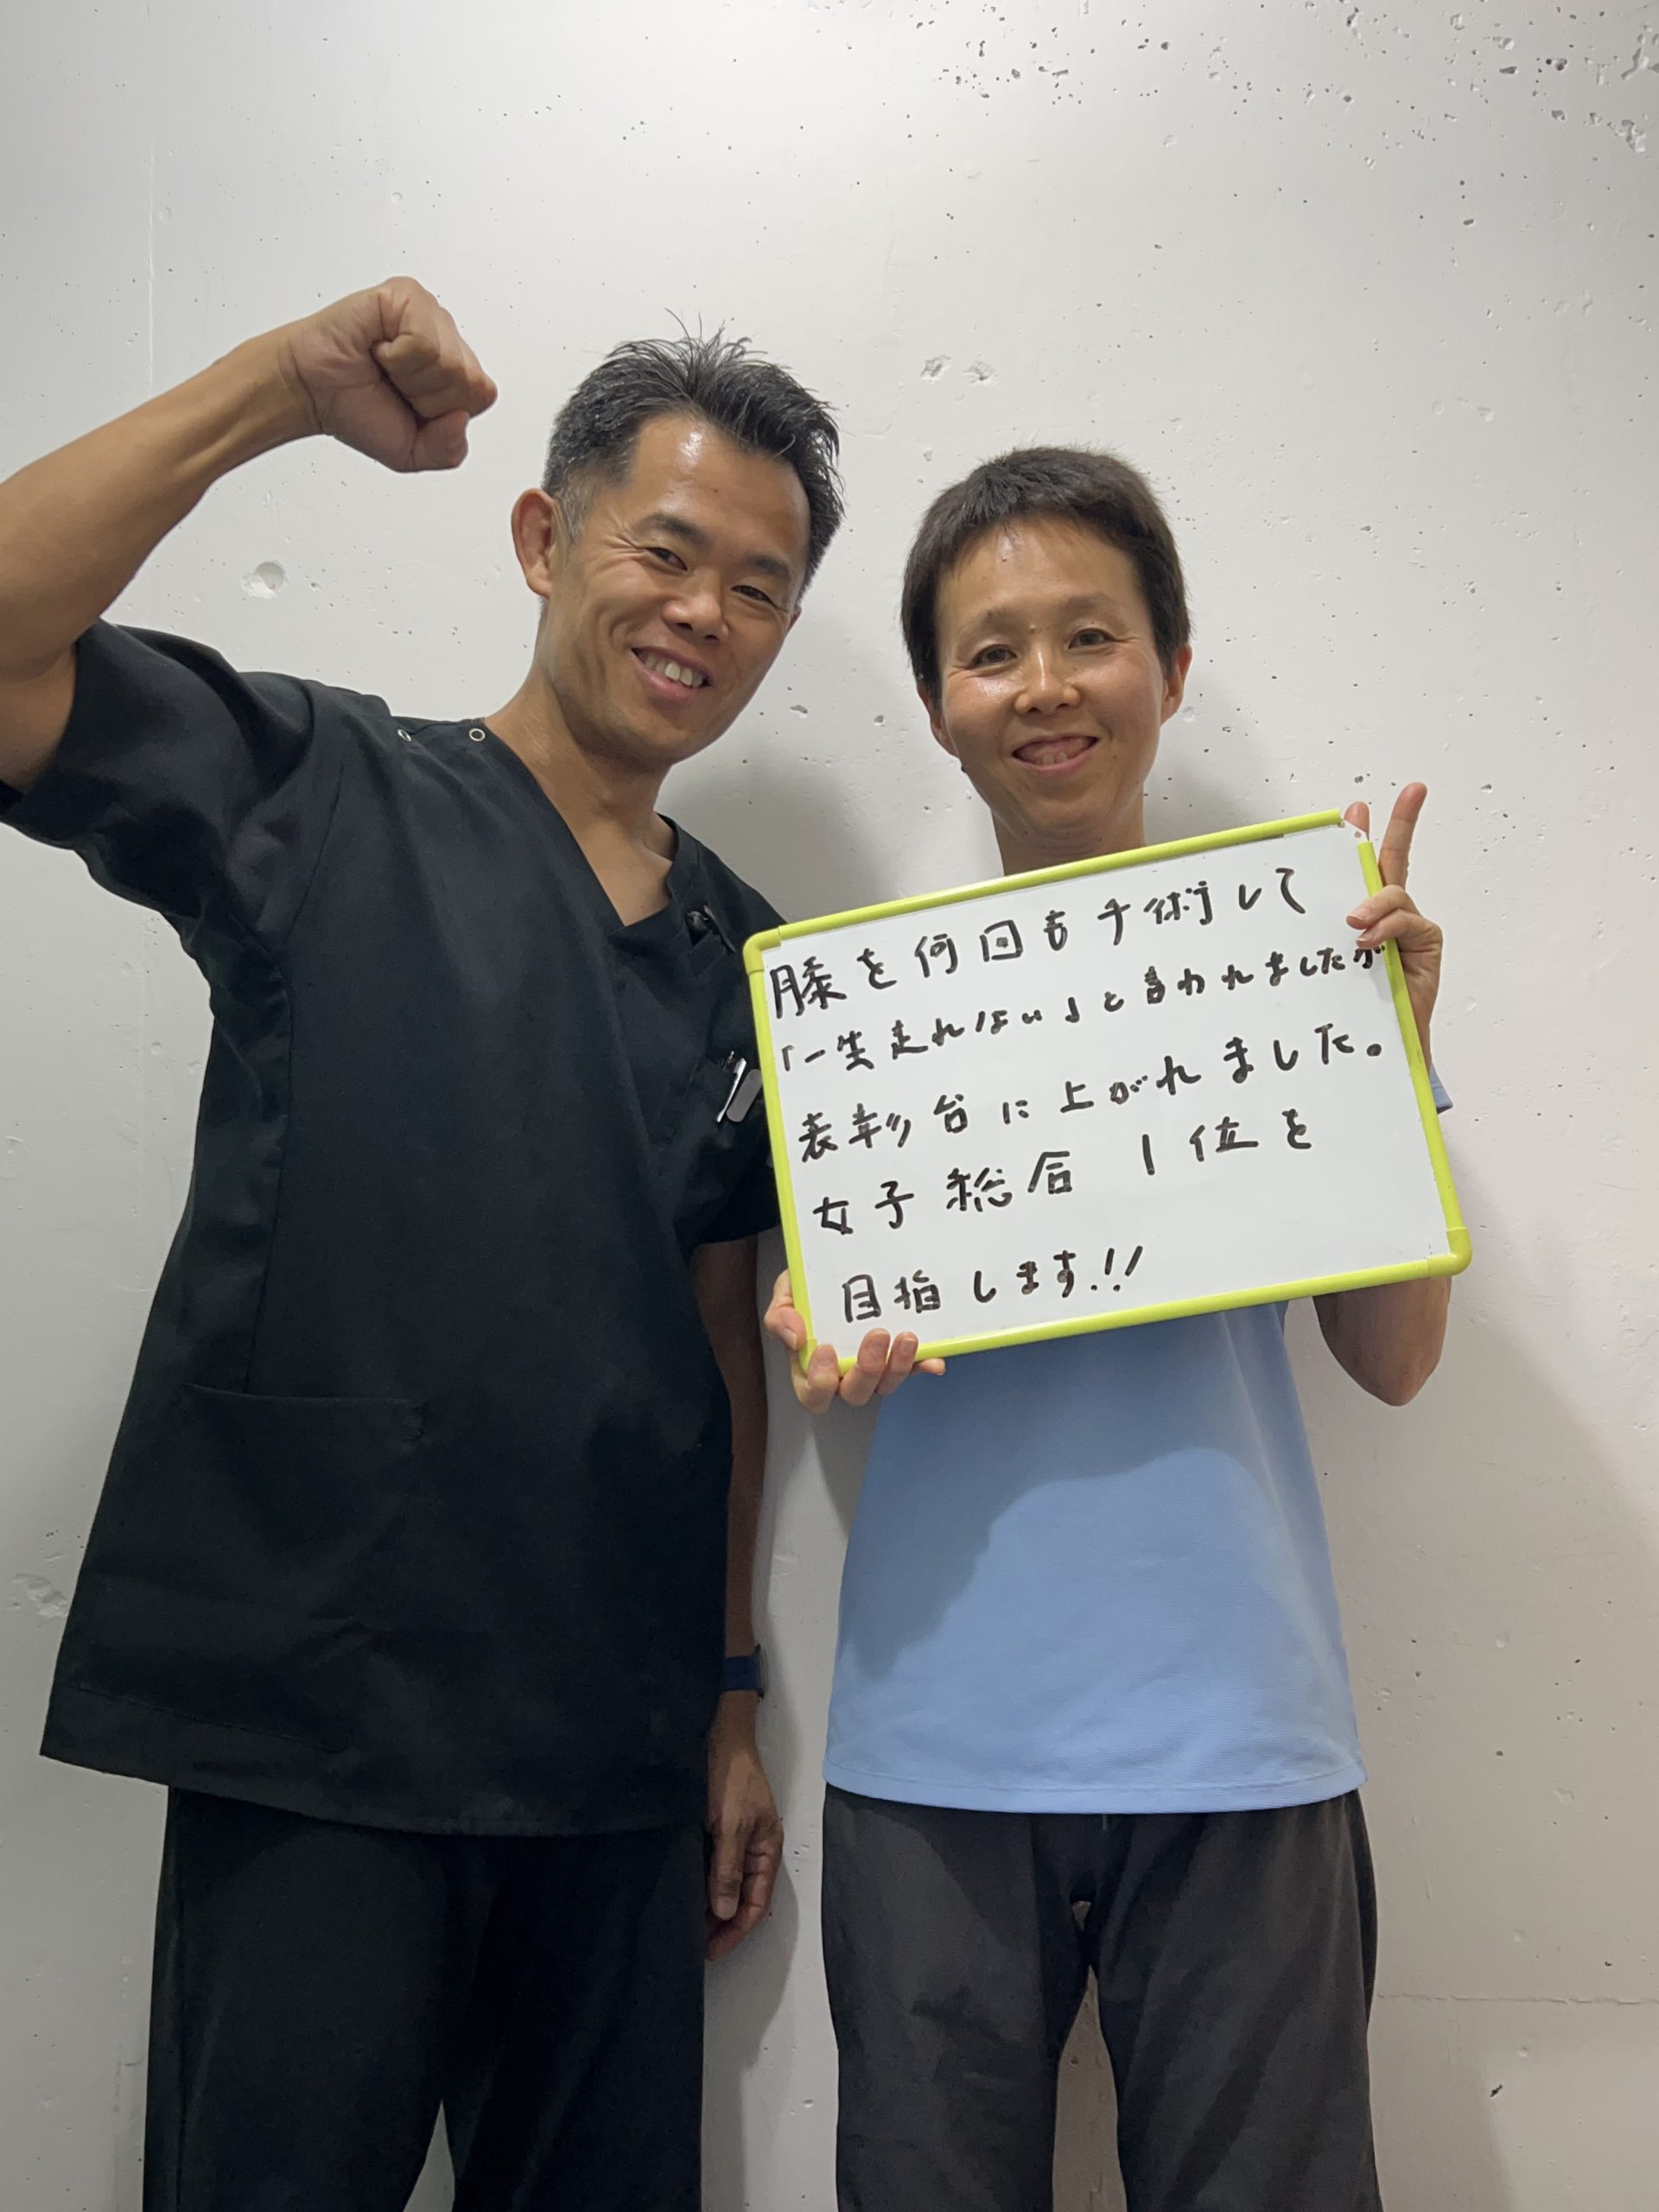 膝を何回も手術して
「一生走れない」と言われましたが
表彰台に上がれました。
女子総合1位を
目指します!!